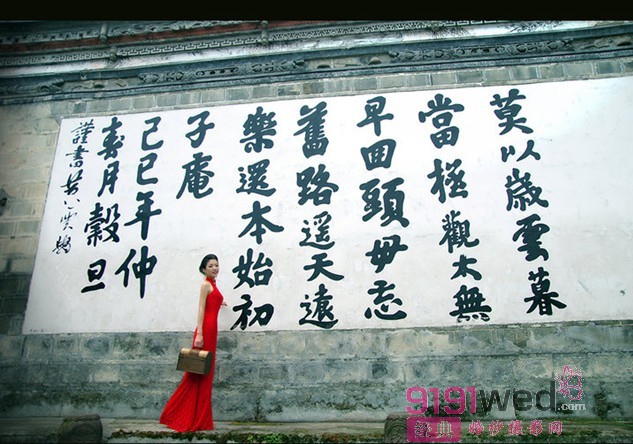 莫以歲雲暮
當極觀太無
早囬頭毋忘
舊路遥天遠
樂還本始初
子庵
己巳年仲
春月穀旦
謹書
9191wed.com
婚紗攝影网